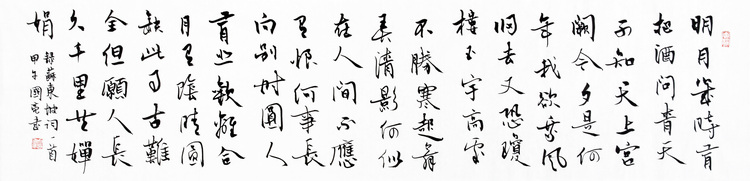 明月幾時有
把酒問青天
不知天上宮
闕今夕是何
年我欲乘風
歸去又恐瓊
樓玉宇高處
不勝寒起舞
弄清影何似
在人間不應
有恨何事長
向別時圓人
有悲歡離合
月有陰晴圓
缺此事古難
全但願人長
久千里共嬋
娟
錄蘇東坡詞一首
甲午國亮書